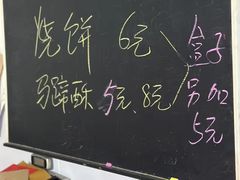 烧饼 6元
马蹄酥 5元、8元
盒子
另加
5元